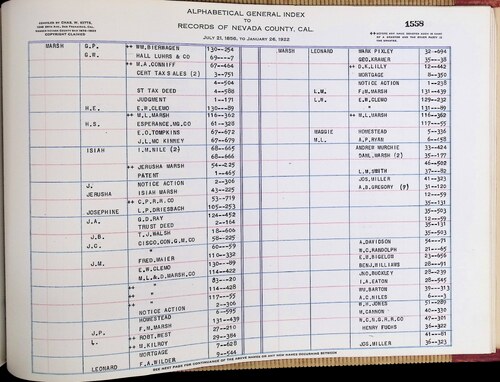 ALPHABETICAL GENERAL INDEX
TO
RECORDS OF NEVADA COUNTY, CAL.
JULY 21, 1856, TO JANUARY 26, 1922
COPYRIGHT CLAIMED
1558
MARSH G.P. ++ WM. BIERWAGEN 130-254
G.W. HALL LUHRS & CO 69-7
++ M.A. CONNIFF 67-464
CERT TAX SALES (2) 3-751
4-504
ST TAX DEED 4-588
JUDGMENT 1-171
H.E. E.W. CLEMO 130-89
++ M.L. MARSH 116-362
H.S. ESPERANCE MG. CO 61-328
E.O. TOMPKINS 67-672
J.L. MC KINNEY 67-679
ISIAH I.M. NILE (2) 68-665
68-666
++ JERUSHA MARSH 54-225
PATENT 1-465
J. NOTICE ACTION 2-306
JERUSHA ISIAH MARSH 43-225
++ C.P.R.R CO 53-719
JOSEPHINE L.P. DRIESBACH 105-253
J.A. G.D. RAY 124-452
TRUST DEED 2-164
J.B. T.J. WALSH 18-606
J.C. CISCO, CON. G.M. CO 58-225
" 60-59
J.M. FRED. MAIER 110-332
E.W. CLEMO 130-89
M.L. & D. MARSH CO 114-422
++ " 83-20
++ " 114-428
++ " 117-55
++ "
NOTICE ACTION 2-306
HOMESTEAD 6-595
F.M. MARSH 131-439
J.P. ++ ROBT. WEST 27-210
L. ++ M. KILROY 29-384
MORTGAGE 7-628
LEONARD F.A. WILDER 9-544
MARSH LEONARD MARK PIXLEY 32-694
GEO. KRAMER 35-38
++ D.K. LILLY 12-442
MORTGAGE 8-350
NOTICE ACTION 1-238
L.W. F.M. MARSH 131-439
L.W. E.W. CLEMO 129-232
" 131-89
++ M.L. MARSH 116-362
117-55
MAGGIE HOMESTEAD 5-336
M.L. A.P. RYAN 6-158
ANDREW MURCHIE 33-424
DANL. MARSH (2) 35-177
46-502
L.M. SMITH 37-82
JOS. MILLER 41-323
A.D. GREGORY (9) 31-120
12-59
31-135
35-503
12-59
31-135
35-503
12-59
31-135
35-503
A. DAVIDSON 54-71
W.C. RANDOLPH 21-65
E.W. BIGELOW 23-656
BENJ. WILLIAMS 28-91
JNO. BUCKLEY 28-239
I.A. EATON 28-545
WM. BARTON 30-313
A.C. NILES 6-3
W.H. JONES 51-289
M. CANNON 40-330
N.C.N.G.R.R CO 47-301
HENRY FUCHS 36-322
41-81
JOS. MILLER 36-323
SEE NEXT PAGE FOR CONTINUANCE OF THE ABOVE NAMES OR ANY NEW NAMES OCCURRING BETWEEN